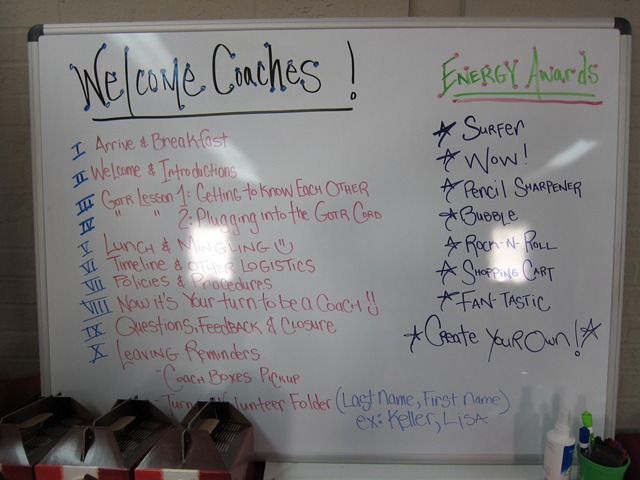 Welcome Coaches!
I Arrive & Breakfast
II Welcome & Introductions
III GOTR Lesson 1: Getting to know Each Other
IV " " 2: Plugging into the GOTR Cord
V Lunch & Mingling
VI Timeline & other Logistics
VII Policies & Procedures
VIII Now it's Your turn to be a Coach
IX Questions, Feedback & Closure
X Leaving Reminders
- Coach Boxes Pickup
- Turn Volunteer Folder (Last Name, First Name)
ex: Keller, Lisa
Energy Awards
Surfer
Wow!
Pencil Sharpener
Bubble
Rock-N-Roll
Shopping Cart
Fan-Tastic
Create Your Own!